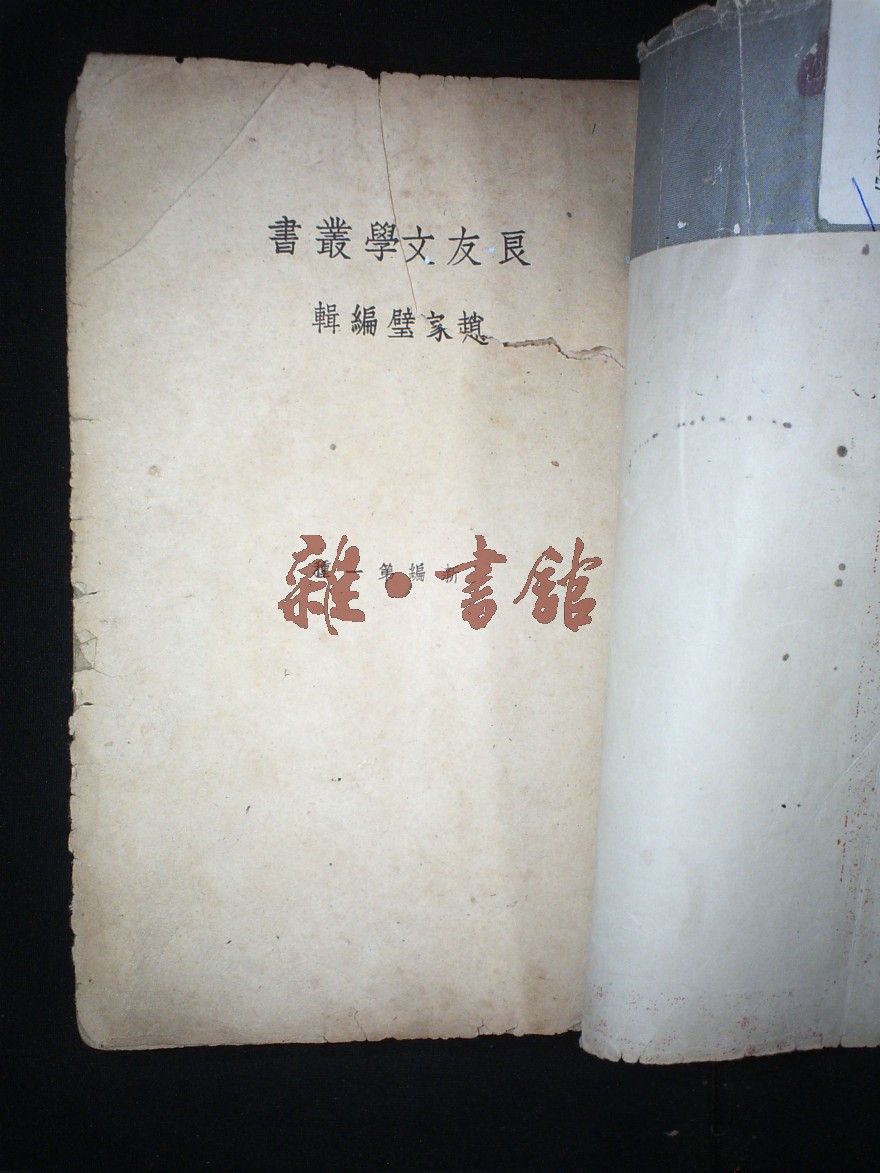 良友文學叢書
趙家璧編輯
新編第一種
雜·書館